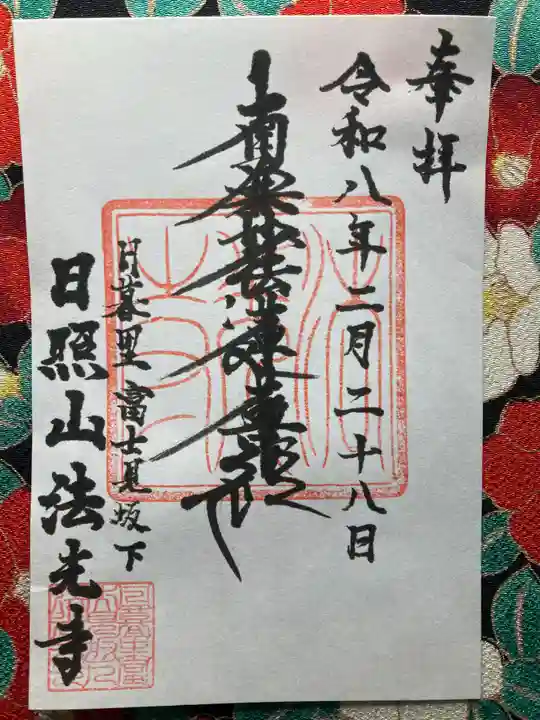 奉拝
令和八年二月二十八日
南無妙法蓮華経
日暮里富士見坂下
日照山法光寺